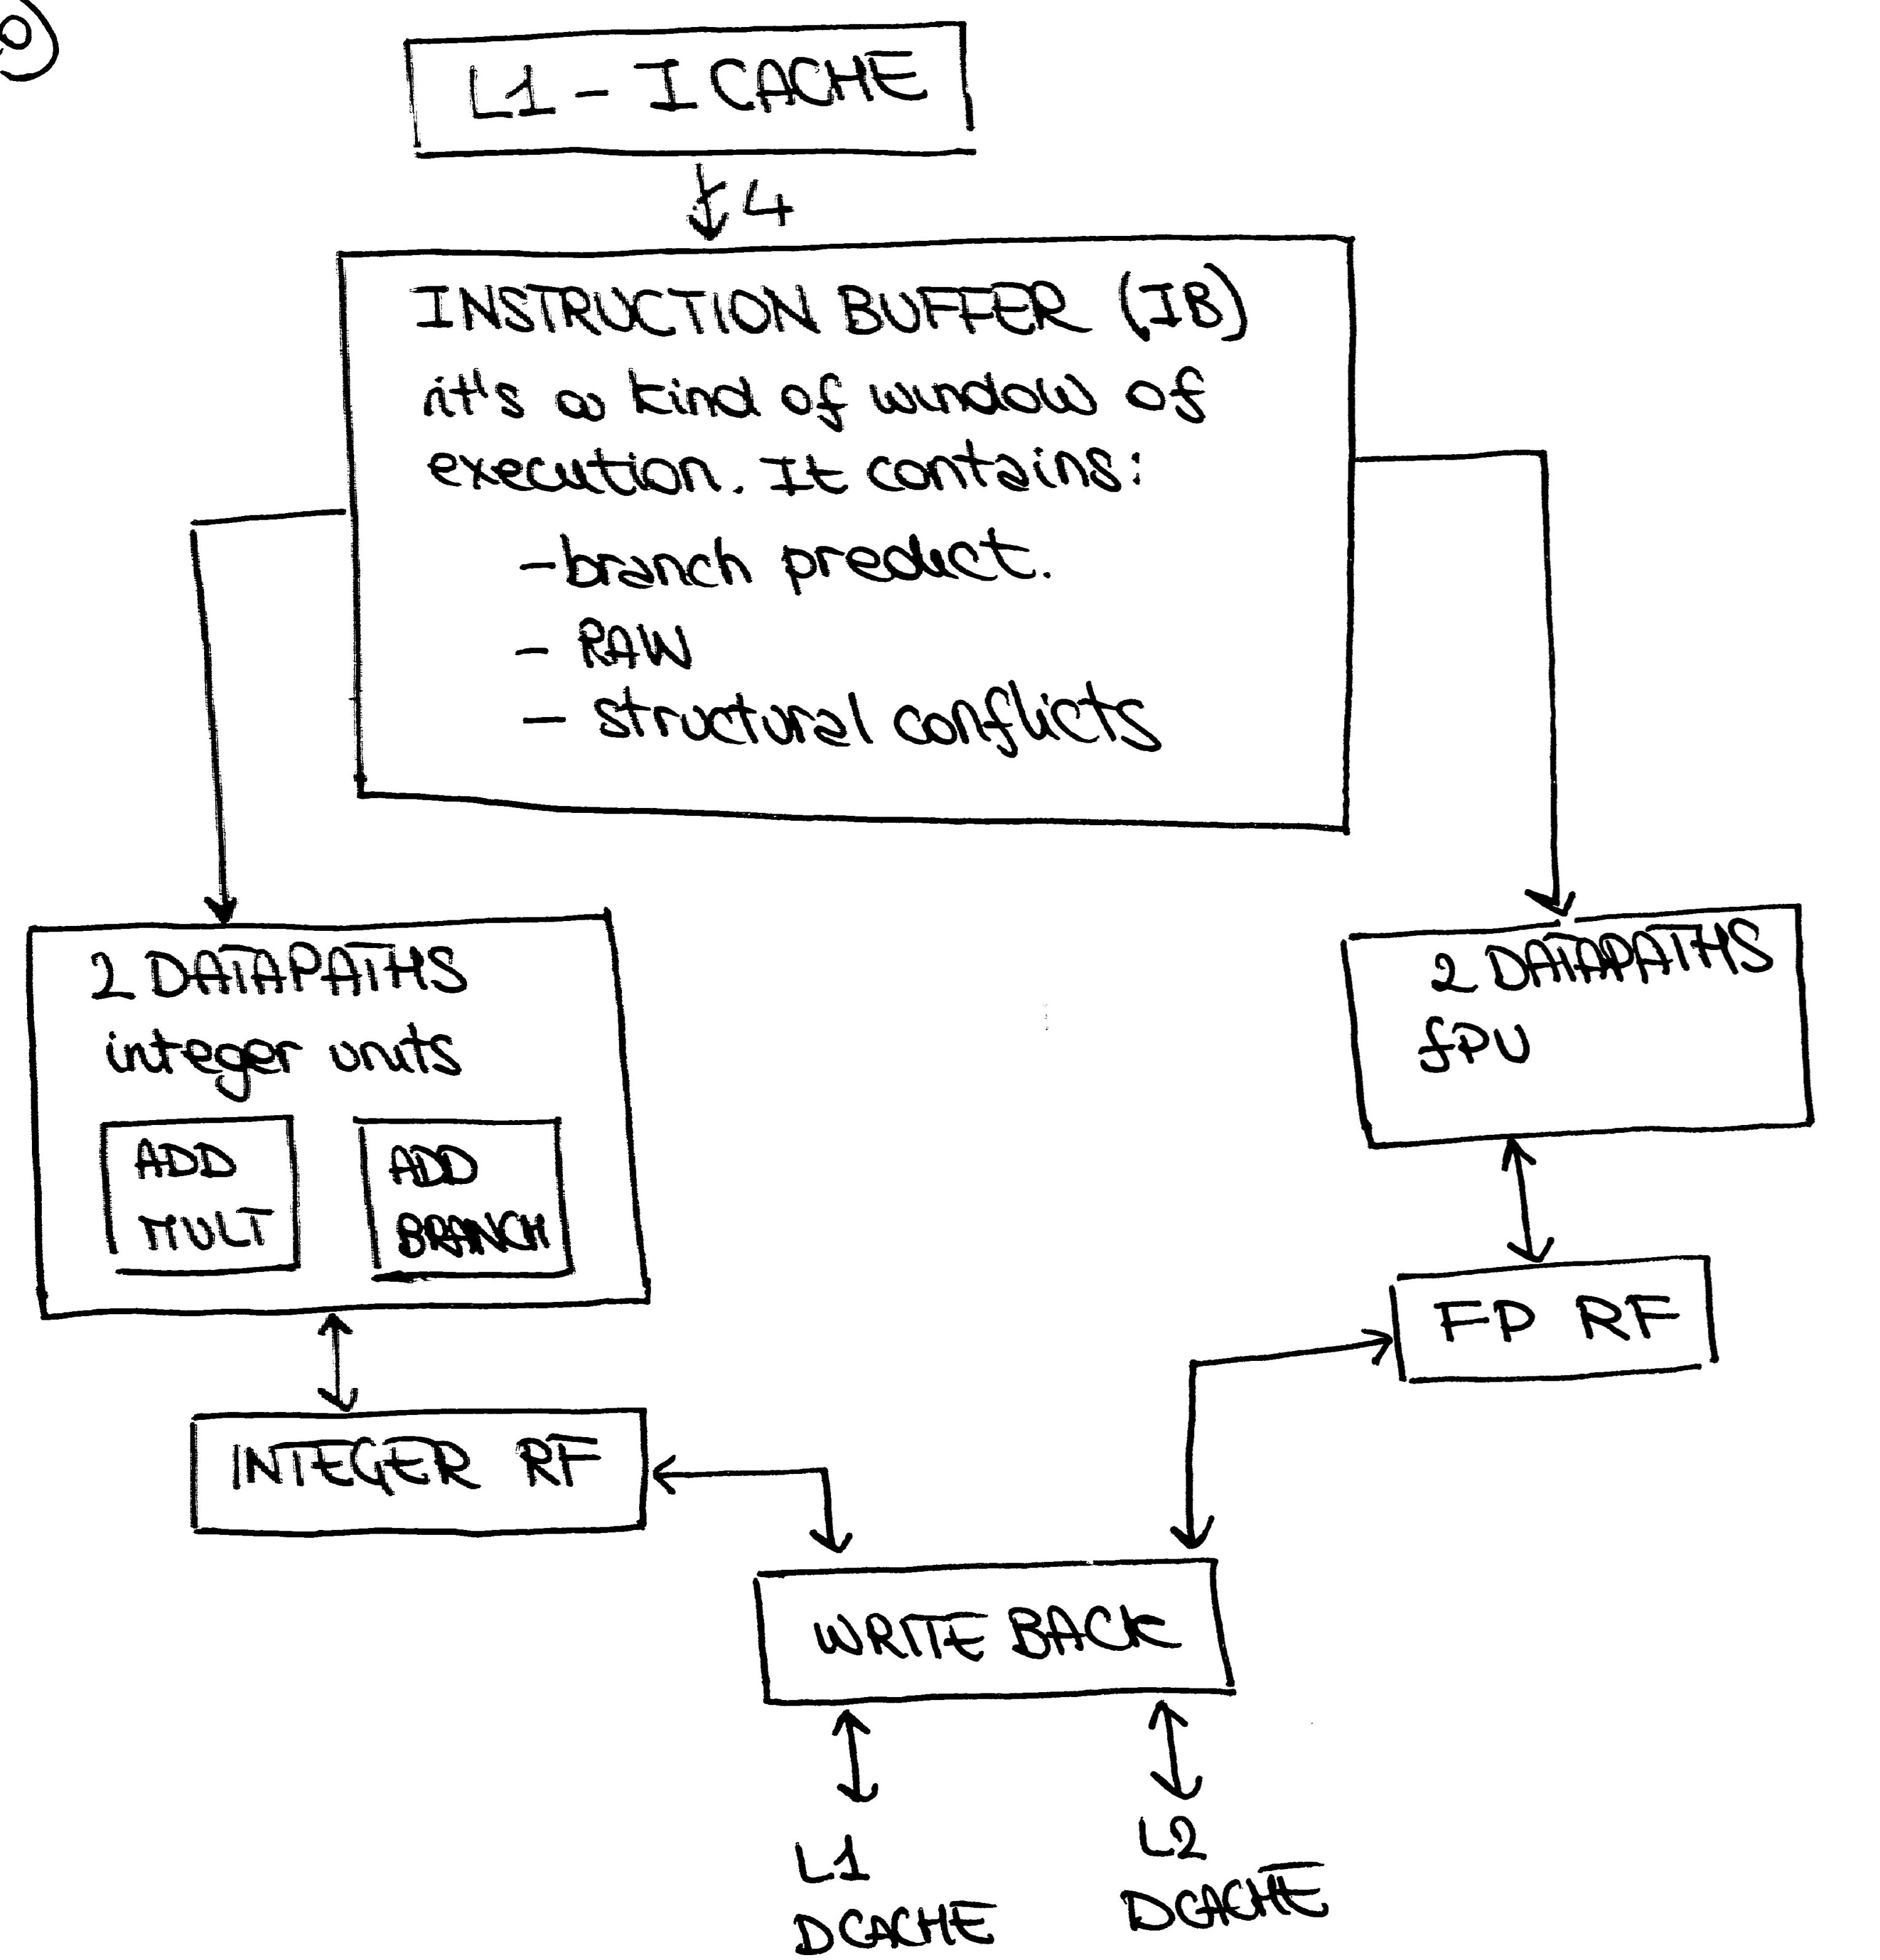 L1 - I CACHE
4
INSTRUCTION BUFFER (IB)
it's a kind of window of
execution. It contains:
- branch predict.
- RAW
- structural conflicts
2 DATAPATHS
integer units
ADD
MULT
ADD
BRANCH
2 DATAPATHS
fPU
FP RF
INTEGER RF
WRITE BACK
L1
DCACHE
L2
DCACHE